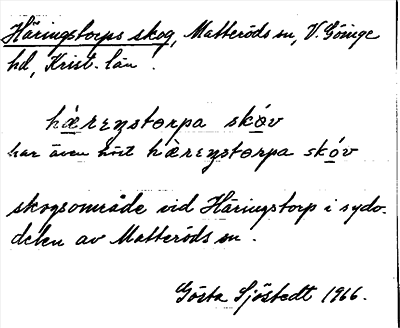 Häringstorps skog, Matteröds sn, V. Göinge
hd, Krist. län.
hǽrɪŋstorpa skóv
har även hört hæ̀rɪŋstorpa skóv
skogsområde vid Häringstorp i sydv.
delen av Matteröds sn.
Gösta Sjöstedt 1966.